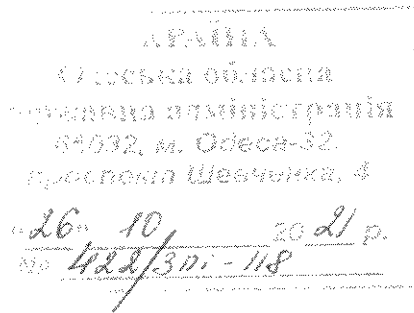 УКРАЇНА
Одеська обласна
державна адміністрація
65032, м. Одеса-32,
проспект Шевченка, 4
"26" 10 2021 р.
№ 422/3пі-118